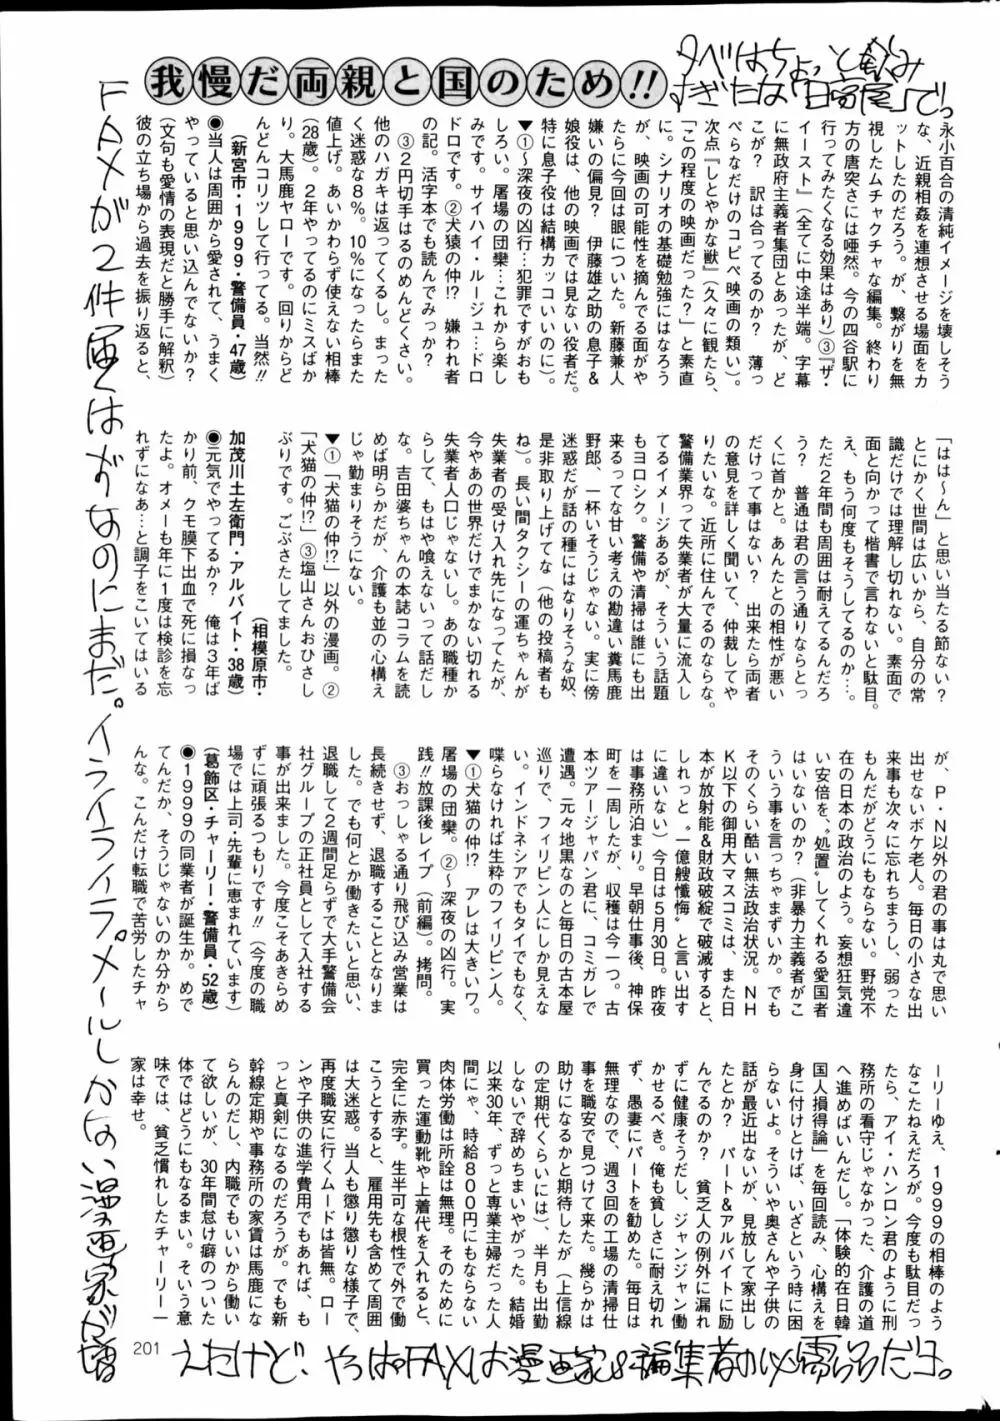 我慢だ両親と国のため!!
夕べはちょっと飲み
すぎたな「日高屋」でっ
永小百合の清純イメージを壊しそう
な、近親相姦を連想させる場面をカ
ットしたのだろう。が、繋がりを無
視したムチャクチャな編集。終わり
方の唐突さには唖然。今の四谷駅に
行ってみたくなる効果はあり)③『ザ・
イースト』(全てに中途半端。字幕
に無政府主義者集団とあったが、ど
こが? 訳は合ってるのか? 薄っ
ぺらなだけのコピペ映画の類い)。
次点『しとやかな獣』(久々に観たら、
「この程度の映画だった?」と素直
に。シナリオの基礎勉強にはなろう
が、映画の可能性を摘んでる面がや
たらに今回は眼についた。新藤兼人
嫌いの偏見? 伊藤雄之助の息子&
娘役は、他の映画では見ない役者だ。
特に息子役は結構カッコいいのに)。
▼①〜深夜の凶行…犯罪ですがおも
しろい。屠場の団欒…これから楽し
みです。サイハイ・ルージュ…ドロ
ドロです。②犬猿の仲!? 嫌われ者
の記。活字本でも読んでみっか?
③2円切手はるのめんどくさい。
他のハガキは返ってくるし。まった
く迷惑な8%。10%になったらまた
値上げ。あいかわらず使えない相棒
(28歳)。2年やってるのにミスばか
り。大馬鹿ヤローです。回りからど
んどんコリツして行ってる。当然!!
(新宮市・1999・警備員・47歳)
●当人は周囲から愛されて、うまく
やっていると思い込んでないか?
(文句も愛情の表現だと勝手に解釈)
彼の立ち場から過去を振り返ると、
「はは〜ん」と思い当たる節ない?
とにかく世間は広いから、自分の常
識だけでは理解し切れない。素面で
面と向かって楷書で言わないと駄目。
え、もう何度もそうしてるのか…。
ただ2年間も周囲は耐えてるんだろ
う? 普通は君の言う通りならとっ
くに首かと。あんたとの相性が悪い
だけって事はない? 出来たら両者
の意見を詳しく聞いて、仲裁してや
りたいな。近所に住んでるのならな。
警備業界って失業者が大量に流入し
てるイメージあるが、そういう話題
もヨロシク。警備や清掃は誰にも出
来るってな甘い考えの勘違い糞馬鹿
野郎、一杯いそうじゃない。実に傍
迷惑だが話の種にはなりそうな奴、
是非取り上げてな(他の投稿者も
ね)。長い間タクシーの運ちゃんが
失業者の受け入れ先になってたが、
今やあの世界だけでまかない切れる
失業者人口じゃないし。あの職種か
らして、もはや喰えないって話だし
な。吉田婆ちゃんの本誌コラムを読
めば明らかだが、介護も並の心構え
じゃ勤まりそうにない。
▼①「犬猫の仲!?」以外の漫画。②
「犬猫の仲!?」③塩山さんおひさし
ぶりです。ごぶさたしてました。
(相模原市・
加茂川土左衛門・アルバイト・38歳)
●元気でやってるか? 俺は3年ば
かり前、クモ膜下出血で死に損なっ
たよ。オメーも年に1度は検診を忘
れずになあ…と調子をこいてはいる
が、P・N以外の君の事は丸で思い
出せないボケ老人。毎日の小さな出
来事も次々に忘れちまうし、弱った
もんだがどうにもならない。野党不
在の日本の政治のよう。妄想狂気違
い安倍を、〝処置〟してくれる愛国者
はいないのか?(非暴力主義者がこ
ういう事を言っちゃまずいか。でも
そのくらい酷い無法政治状況。NH
K以下の御用大マスコミは、また日
本が放射能&財政破綻で破滅すると、
しれっと〝一億総懺悔〟と言い出す
に違いない)今日は5月30日。昨夜
は事務所泊まり。早朝仕事後、神保
町を一周したが、収穫は今一つ。古
本ツアージャパン君に、コミガレで
遭遇。元々地黒なのと毎日の古本屋
巡りで、フィリピン人にしか見えな
い。インドネシアでもタイでもなく、
喋らなければ生粋のフィリピン人。
▼①犬猫の仲!? アレは大きいワ。
屠場の団欒。②〜深夜の凶行。実
践!!放課後レイプ(前編)。拷問。
③おっしゃる通り飛び込み営業は
長続きせず、退職することとなりま
した。でも何とか働きたいと思い、
退職して2週間足らずで大手警備会
社グループの正社員として入社する
事が出来ました。今度こそあきらめ
ずに頑張るつもりです!!(今度の職
場では上司・先輩に恵まれています)
(葛飾区・チャーリー・警備員・52歳)
●1999の同業者が誕生か。めで
てんだか、そうじゃないのか分から
んな。こんだけ転職で苦労したチャ
ーリーゆえ、1999の相棒のよう
なこたねえだろが。今度も駄目だっ
たら、アイ・ハンロン君のように刑
務所の看守じゃなかった、介護の道
へ進めばいいんだし。「体験的在日韓
国人損得論」を毎回読み、心構えを
身に付けとけば、いざという時に困
らないよ。そういや奥さんや子供の
話が最近出ないが、見放して家出し
たとか? パート&アルバイトに励
んでるのか? 貧乏人の例外に漏れ
ずに健康そうだし、ジャンジャン働
かせるべき。俺も貧しさに耐え切れ
ず、愚妻にパートを勧めた。毎日は
無理なので、週3回の工場の清掃仕
事を職安で見つけて来た。幾らかは
助けになるかと期待したが(上信線
の定期代くらいには)、半月も出勤
しないで辞めちまいやがった。結婚
以来30年、ずっと専業主婦だった人
間にゃ、時給800円にもならない
肉体労働は所詮は無理。そのために
買った運動靴や上着代を入れると、
完全に赤字。生半可な根性で外で働
こうとすると、雇用先も含めて周囲
は大迷惑。当人も懲り懲りな様子で、
再度職安に行くムードは皆無。ロー
ンや子供の進学費用でもあれば、も
っと真剣になるのだろうが。でも新
幹線定期や事務所の家賃は馬鹿にな
らんのだし、内職でもいいから働い
て欲しいが、30年間怠け癖のついた
体ではどうにもなるまい。そういう意
味では、貧乏慣れしたチャーリー一
家は幸せ。
FAXが2件届くはずなのにまだ。イライライラ。メールしかない漫画家が増
えたけど、やっぱFAXは漫画家&編集者の必需品だヨ。
201